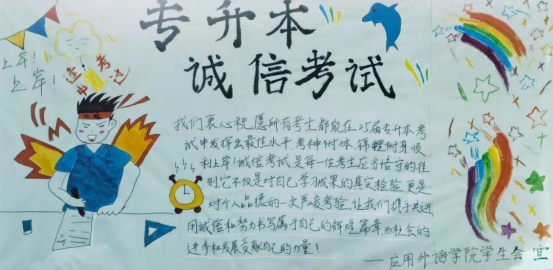 专升本
诚信考试
上岸!
上岸!
逢考
必过
我们衷心祝愿所有考生都能在25届专升本考
试中发挥出最佳水平,考神附体,锦鲤附身,顺
利上岸!诚信考试是每一位考生应当恪守的准
则,它不仅是对自己学习成果的真实检验,更是
对个人品德的一次严峻考验,让我们携手共进
用诚信和努力书写属于自己的辉煌篇章,为社会的
进步和发展贡献自己的力量!
——应用外语学院学生会 宣